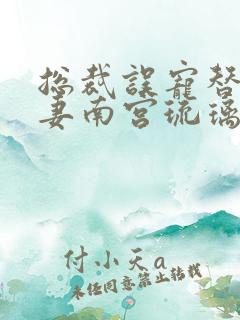 总裁误宠替
妻南宫琉璃
付小天a
未经同意禁止转载